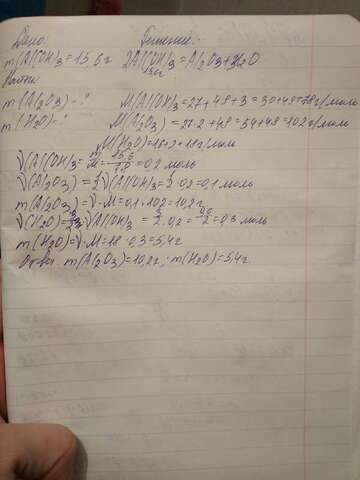 Дано: Решение:
m(Al(OH)3=15,6г 2Al(OH)3=Al2O3+3H2O
15,6г
Найти:
m(Al2O3)-? M(Al(OH)3=27+48+3=30+48=78г/моль
m(H2O)-? M(Al2O3)=27·2+48=54+48=102г/моль
M(H2O)=16+2=18г/моль
ν(Al(OH)3=m/M=15,6/78=0,2 моль
ν(Al2O3)=1/2ν(Al(OH)3=1/2·0,2=0,1 моль
m(Al2O3)=ν·M=0,1·102=10,2г
ν(H2O)=3/2ν(Al(OH)3=3/2·0,2=0,6/2=0,3 моль
m(H2O)=ν·M=18·0,3=5,4г
Ответ: m(Al2O3)=10,2г; m(H2O)=5,4г